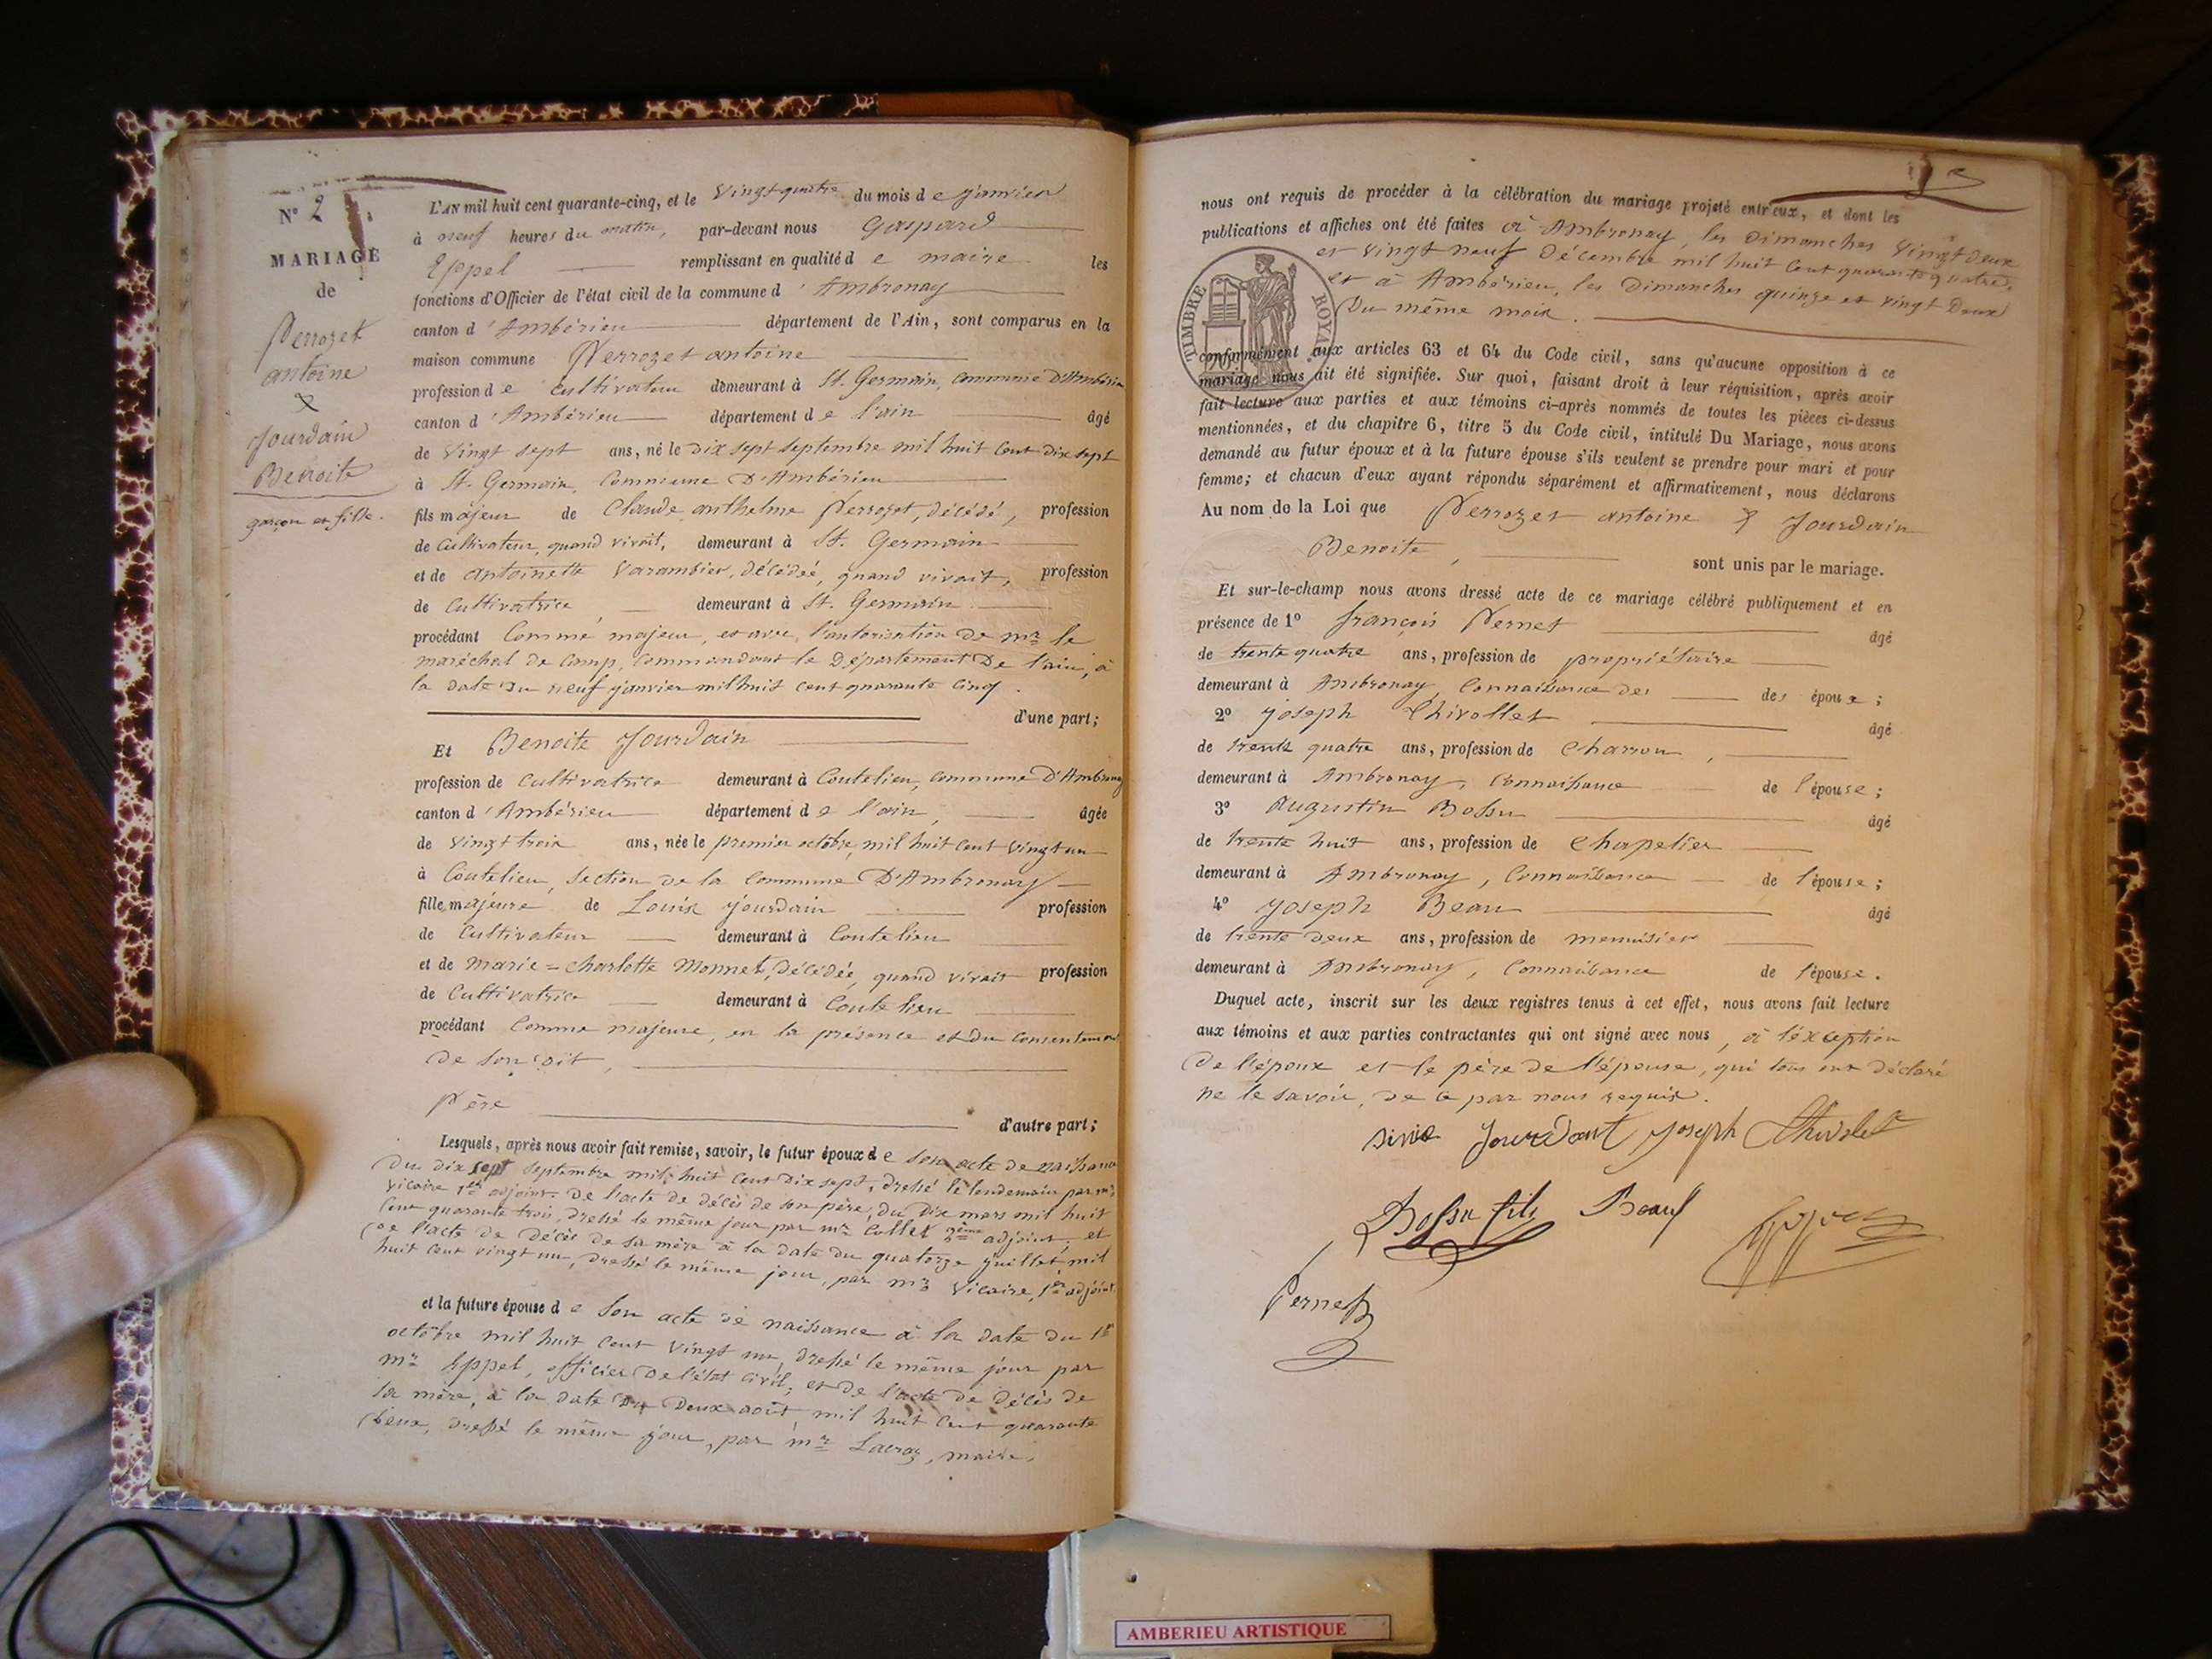 N° 2
MARIAGE
de
Perrozet
antoine
&
Jourdain
Benoite
garçon et fille.
L'AN mil huit cent quarante-cinq, et le vingt quatre du mois de janvier
à neuf heures du matin, par-devant nous Gaspard
Eppel remplissant en qualité de maire les
fonctions d'Officier de l'état civil de la commune d'Ambronay
canton d'Ambérieu département de l'Ain, sont comparus en la
maison commune Perrozet antoine
profession de cultivateur demeurant à St. Germain, commune d'Ambérieu
canton d'Ambérieu département de l'ain âgé
de vingt sept ans, né le dix sept septembre mil huit cent dix sept
à St. Germain, Commune D'Ambérieu
fils majeur de Claude anthelme Perrozet, décédé, profession
de Cultivateur, quand vivait, demeurant à St. Germain
et de antoinette Varambier, décédée, quand vivait, profession
de Cultivatrice demeurant à St. Germain
procédant Comme majeur, et avec l'autorisation de mr le
maréchal de Camp, Commandant le Département De l'ain, à
la date du neuf janvier mil huit cent quarante cinq.
d'une part;
Et Benoite Jourdain
profession de Cultivatrice demeurant à Coutelieu, commune D'Ambronay
canton d'Ambérieu département de l'ain, âgée
de vingt trois ans, née le premier octobre, mil huit cent vingt un
à Coutelieu, section de la Commune D'Ambronay
fille majeure de Louis Jourdain profession
de Cultivateur demeurant à Coutelieu
et de marie=charlotte Monnet, décédée, quand vivait profession
de Cultivatrice demeurant à Coutelieu
procédant Comme majeure, en la présence et du Consentement
de son dit,
Père
d'autre part;
Lesquels, après nous avoir fait remise, savoir, le futur époux de son acte de naissance
du dix sept septembre mil huit cent dix sept, dressé le lendemain par mr
vicaire 1er adjoint. De l'acte de décès de son père, du dix mars mil huit
Cent quarante trois, dressé le même jour par mr Collet 2ème adjoint, et
de l'acte de décès de sa mère à la date du quatorze juillet mil
huit cent vingt un, dressé le même jour, par mr Vicaire, 1er adjoint
et la future épouse de son acte de naissance à la date du 1er
octobre mil huit cent vingt un, dressé le même jour par
mr Eppel, officier De l'état civil; et de l'acte de décès de
sa mère, à la date du Deux août, mil huit Cent quarante
Deux, dressé le même jour, par mr Lacraz, maire.
nous ont requis de procéder à la célébration du mariage projeté entr'eux, et dont les
publications et affiches ont été faites à Ambronay, les Dimanches vingt deux
et vingt neuf Décembre mil huit cent quarante quatre,
et à Ambérieu, les Dimanches quinze et vingt Deux
Du même mois.
TIMBRE ROYAL
conformément aux articles 63 et 64 du Code civil, sans qu'aucune opposition à ce
mariage nous ait été signifiée. Sur quoi, faisant droit à leur réquisition, après avoir
fait lecture aux parties et aux témoins ci-après nommés de toutes les pièces ci-dessus
mentionnées, et du chapitre 6, titre 5 du Code civil, intitulé Du Mariage, nous avons
demandé au futur époux et à la future épouse s'ils veulent se prendre pour mari et pour
femme; et chacun d'eux ayant répondu séparément et affirmativement, nous déclarons
Au nom de la Loi que Perrozet antoine & Jourdain
Benoite, sont unis par le mariage.
Et sur-le-champ nous avons dressé acte de ce mariage célébré publiquement et en
présence de 1° françois Pernet âgé
de trente quatre ans, profession de propriétaire
demeurant à Ambronay, Connaissance des des époux;
2° Joseph Chivollet âgé
de trente quatre ans, profession de Charron,
demeurant à Ambronay, Connaissance de l'épouse;
3° Augustin Bossu âgé
de trente huit ans, profession de Chapelier
demeurant à Ambronay, Connaissance de l'épouse;
4° Joseph Beau âgé
de trente deux ans, profession de menuisier
demeurant à Ambronay, Connaissance de l'épouse.
Duquel acte, inscrit sur les deux registres tenus à cet effet, nous avons fait lecture
aux témoins et aux parties contractantes qui ont signé avec nous, à l'éxception
De l'époux et le père de l'épouse, qui tous ont déclaré
ne le savoir, de ce par nous requis.
Jourdant Joseph Chivolet
Bossu fils Beau
Pernet
AMBERIEU ARTISTIQUE